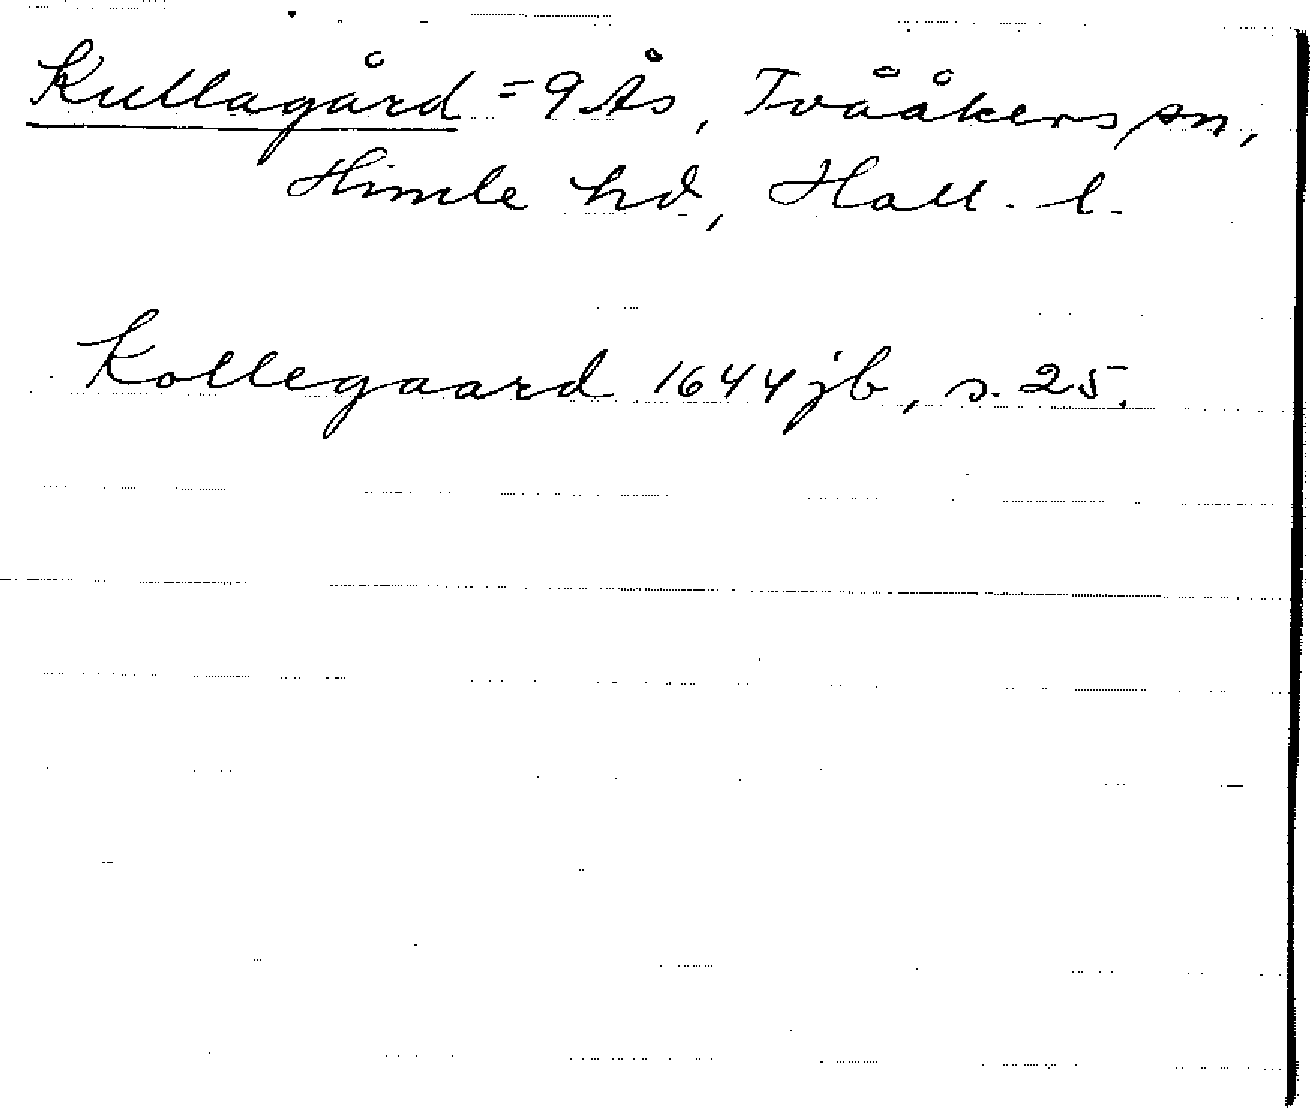 Kullagård = 9 Ås, Tvååkers sn,
Himle hd, Hall. l.
Kollegaard 1644 jb, s. 25.